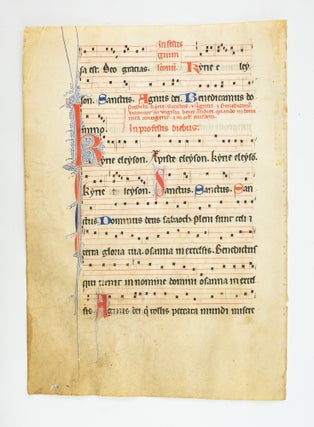 in festis
sa est. Deo gracias.
Kyrie e ley
son. Sanctus. Agnus dei. Benedicamus do
mino.
In profestis diebus.
Kyrie eleyson. Xpiste eleyson. Kyrie eleyso.
Kyrie eleyson. Sanctus. Sanctus. San
ctus. Dominus deus sabaoth. Pleni sunt celi et
terra gloria tua. osanna in excelsis. Benedictus
qui venit in nomine domini osanna in excel
sis. Agnus dei q tollis peccata mundi misere